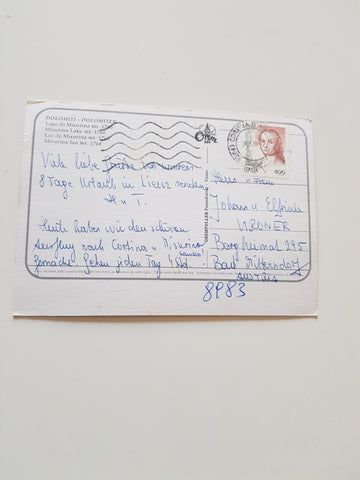 DOLOMITI - DOLOMITEN
Lago di Misurina mt. 1760
Misurina Lake mt. 1760
Lac de Misurina mt. 1760
Misurina See mt. 1760
ITALIA
600
Viele liebe Grüße von unserem
8 Tage Urlaub in Lienz senden
H u T.
Heute haben wir den schönen
Ausflug nach Cortina u Misurina
gemacht. Gehen jeden Tag 4 Std.
wandern!
Herr u Frau
Johann u. Elfriede
KRONER
Bergheimat 295
Bad Mitterndorf
AUSTRIA
8983